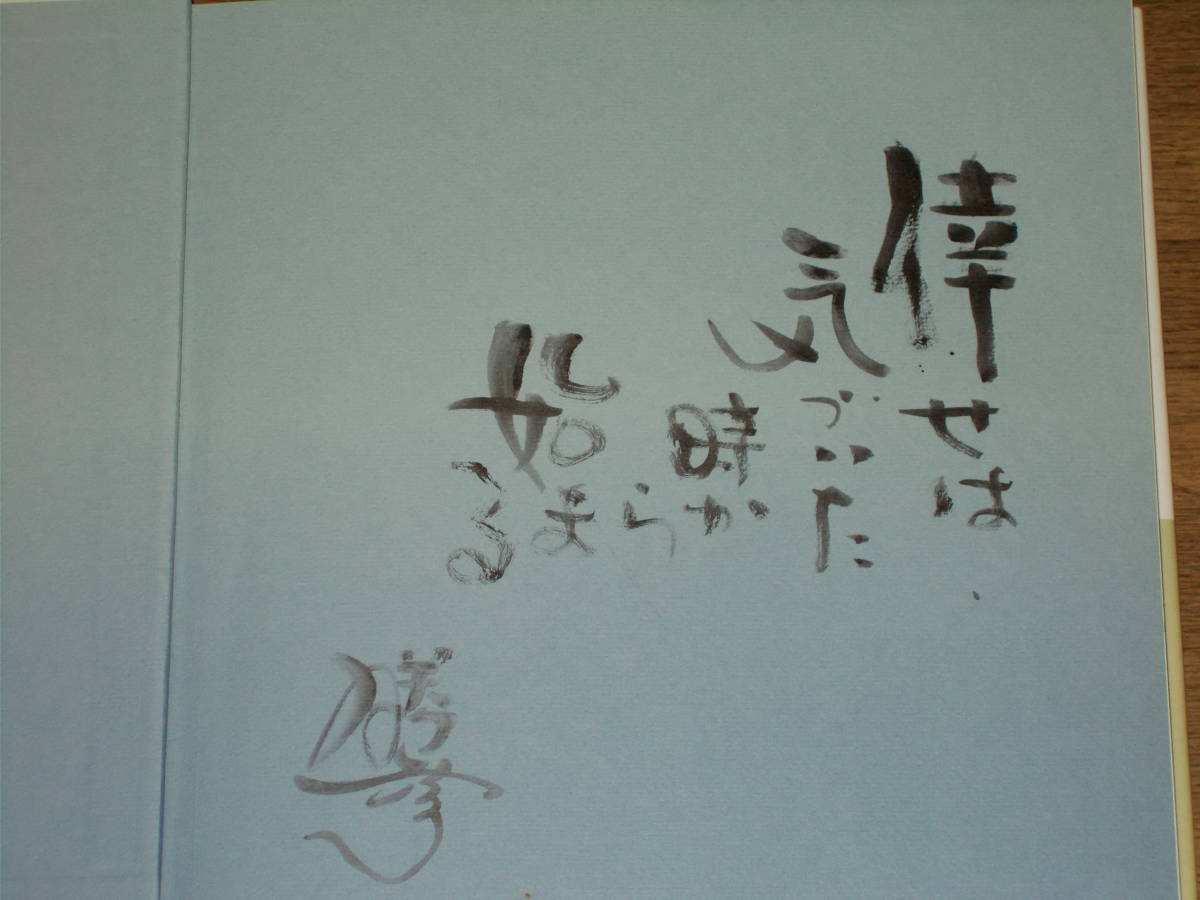 倖せは
気づいた
時から
始まる
勝